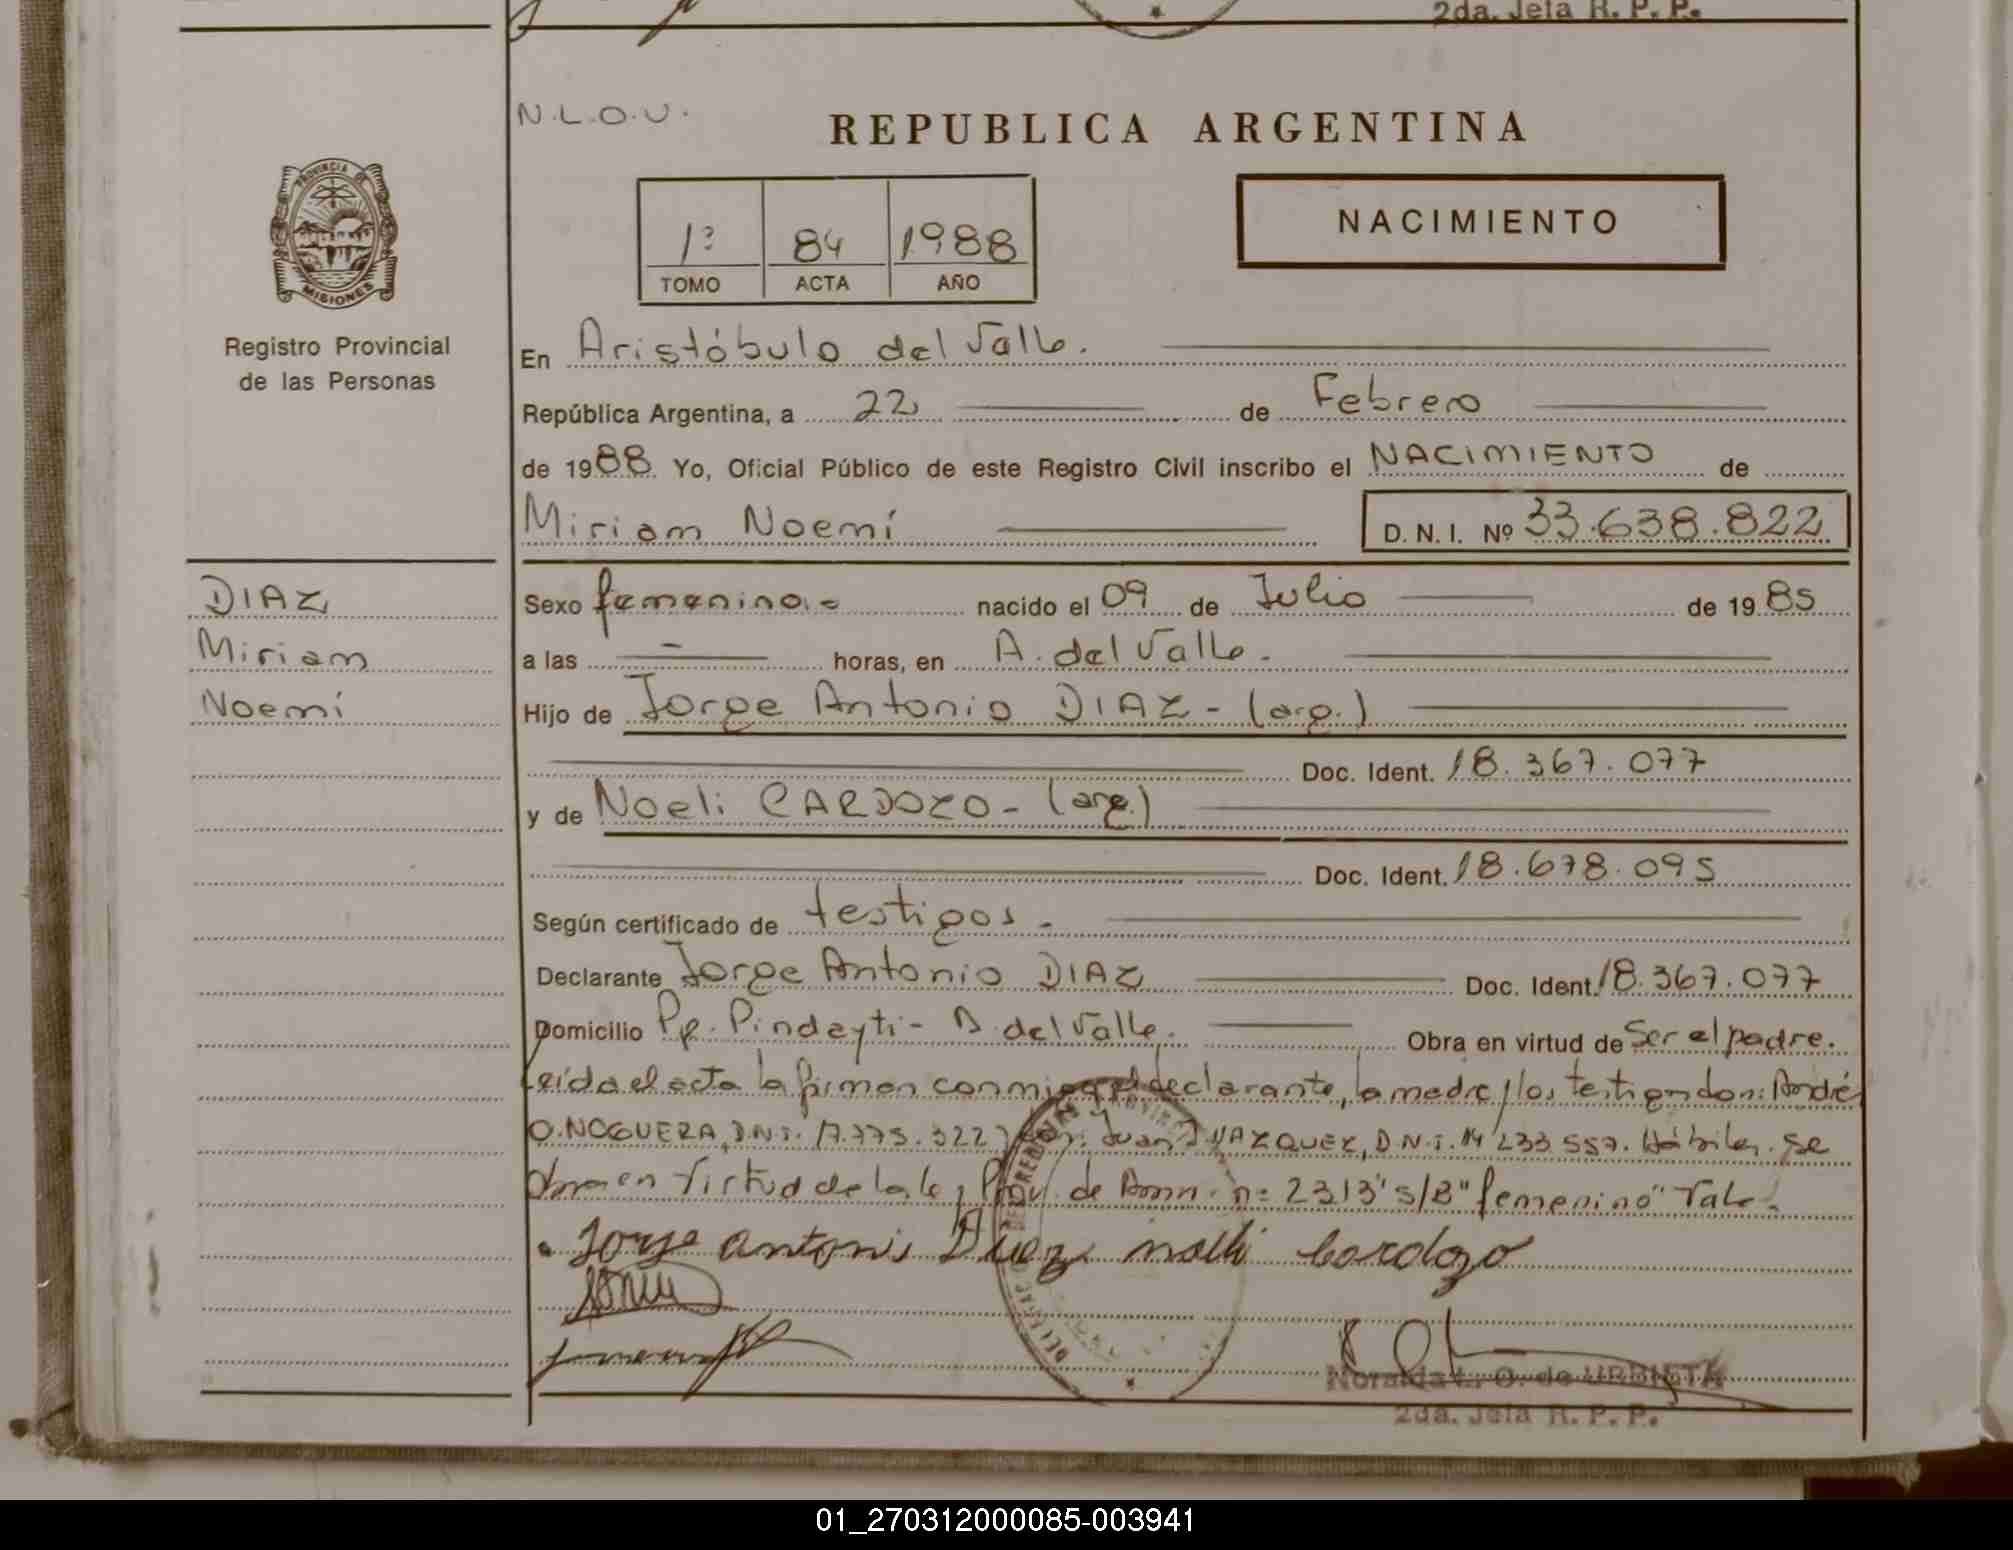 2da. Jefa R. P. P.
N.L.O.U.
REPUBLICA ARGENTINA
NACIMIENTO
1º 84 1988
TOMO ACTA AÑO
PROVINCIA DE MISIONES
Registro Provincial
de las Personas
En Aristóbulo del Valle.
República Argentina, a 22 de Febrero
de 1988 Yo, Oficial Público de este Registro Civil inscribo el NACIMIENTO de
Miriam Noemí D. N. I. Nº 33.638.822
DIAZ
Miriam
Noemí
Sexo femenino.- nacido el 09 de Julio de 1985
a las — horas, en A. del Valle.
Hijo de Jorge Antonio DIAZ - (arg.)
Doc. Ident. 18.367.077
y de Noeli CARDOZO - (arg.)
Doc. Ident. 18.678.095
Según certificado de testigos.
Declarante Jorge Antonio DIAZ Doc. Ident. 18.367.077
Domicilio Pje. Pindayti - A. del Valle. Obra en virtud de Ser el padre.
Leída el acta la firman conmigo el declarante, la madre y los testigos don: André
O. NOGUERA, D.N.I. 17.775.322 y don: Juan VAZQUEZ, D.N.I. 14 233 557. Hábiles. Se
en virtud de la ley nº 2313 s/B "femenino" Vale.
Jorge antonio Diaz noeli Cardozo
Noralda L. O. de URBIETA
2da. Jefa R. P. P.
01_270312000085-003941